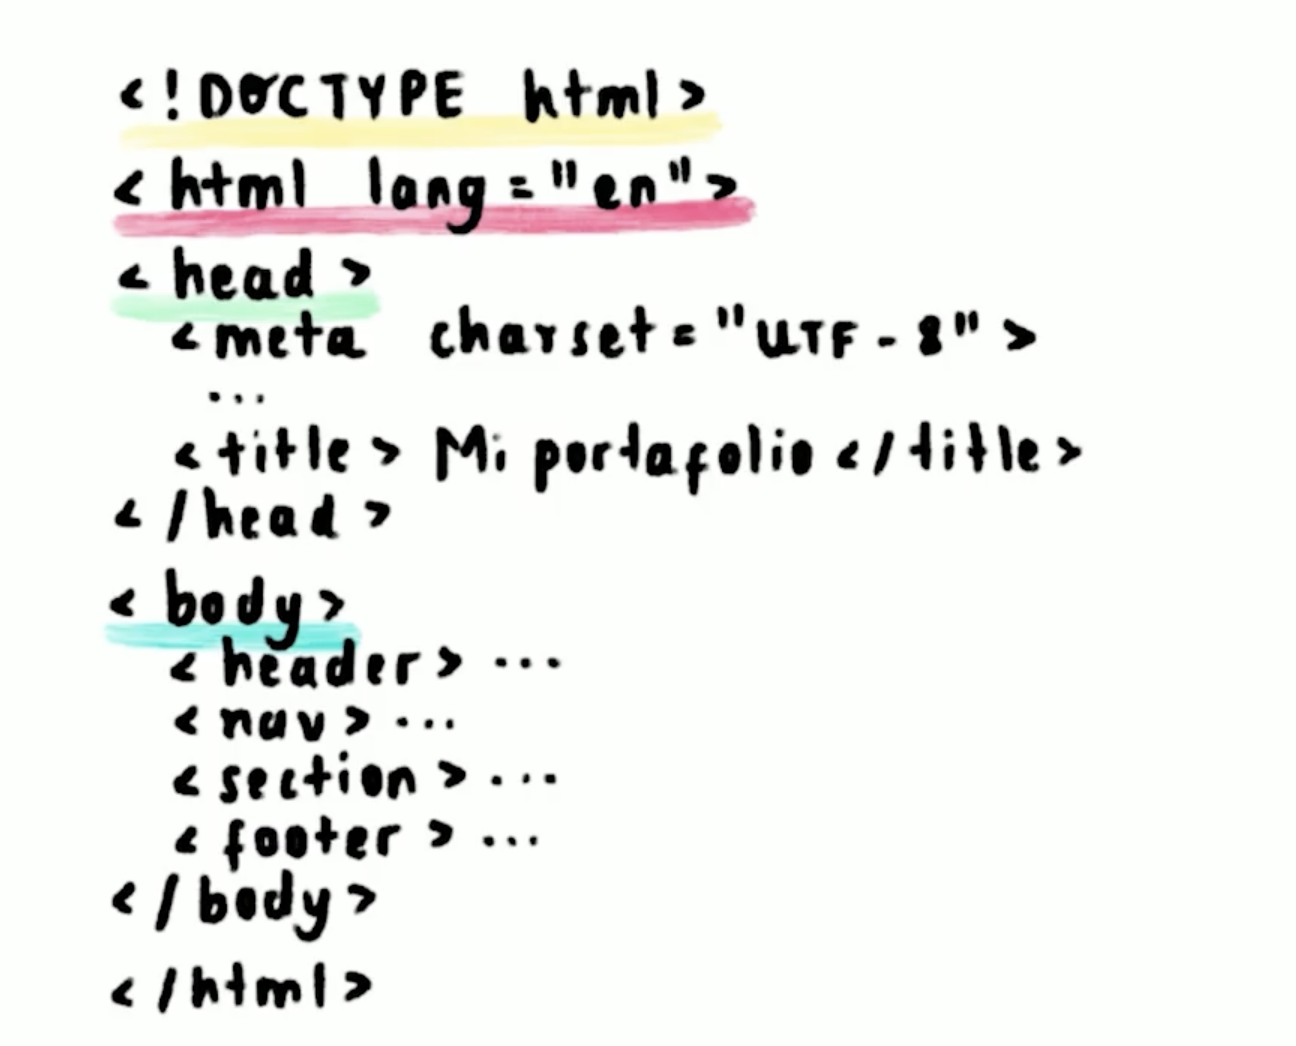 <!DOCTYPE html>
<html lang="en">
<head>
<meta charset="UTF-8">
...
<title> Mi portafolio </title>
</head>
<body>
<header> ...
<nav> ...
<section> ...
<footer> ...
</body>
</html>